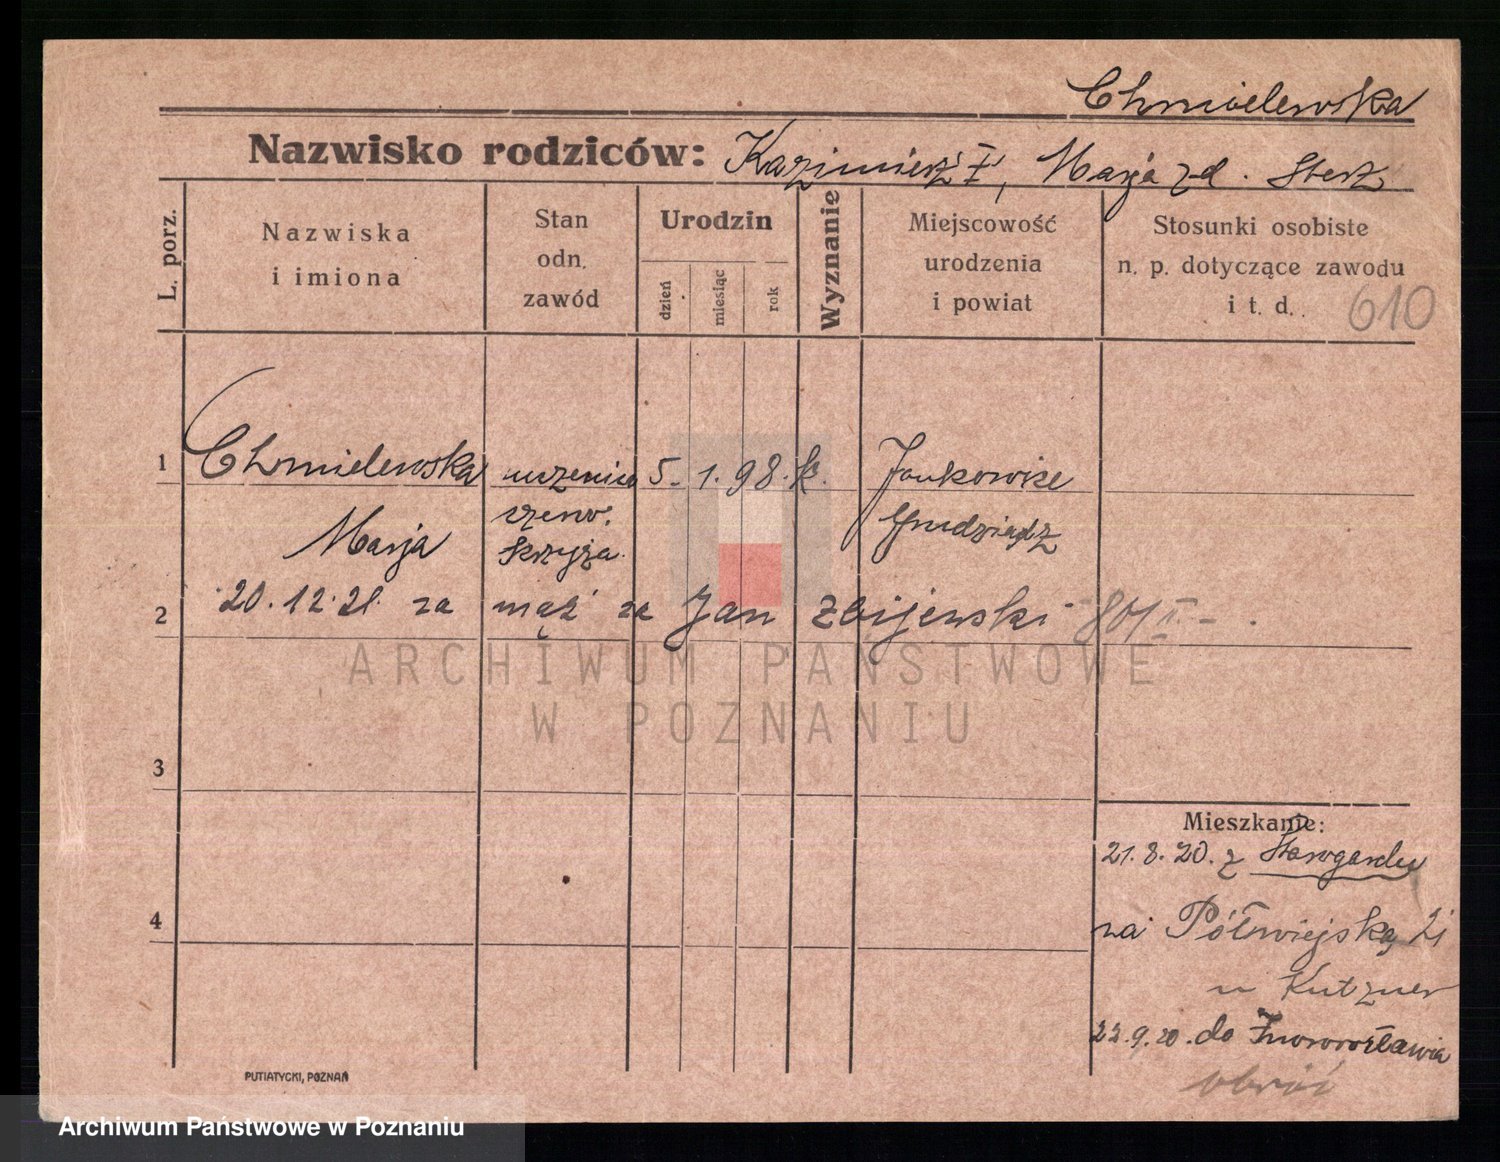 Chmielewska
Nazwisko rodziców: Kazimierz i, Marja zd. Sterz
L. porz.
Nazwiska
i imiona
Stan
odn.
zawód
Urodzin
dzień
miesiąc
rok
Wyznanie
Miejscowość
urodzenia
i powiat
Stosunki osobiste
n. p. dotyczące zawodu
i t. d.
610
1 Chmielewska uczenica 5. 1. 98. k. Jankowice
czerw. Grudziądz
Marja Krzyża
2 20.12.21. za mąż za Jan Zbijewski
ARCHIWUM PAŃSTWOWE
W POZNANIU
3
Mieszkanie:
21.8.20. z Starogardu
4
na Półwiejską 21
u Kutzner
22.9.20. do Inowrocławia
obróć
PUTIATYCKI, POZNAŃ
Archiwum Państwowe w Poznaniu